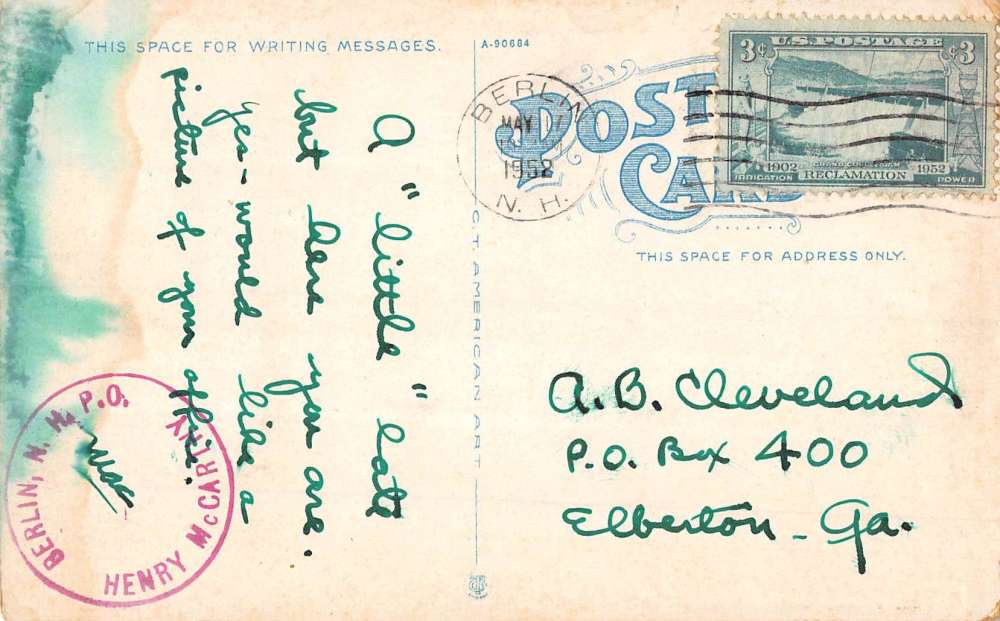 THIS SPACE FOR WRITING MESSAGES.
A "little" late
but here you are.
yes - would like a
picture of your office.
BERLIN, N. H. P.O.
HENRY McCARTHY
C.T. AMERICAN ART
A-90684
POST CARD
BERLIN
MAY 17
1952
N. H.
3¢ U.S. POSTAGE 3¢
1902 GRAND COULEE DAM 1952
IRRIGATION RECLAMATION POWER
THIS SPACE FOR ADDRESS ONLY.
A.B. Cleveland
P.O. Box 400
Elberton - Ga.